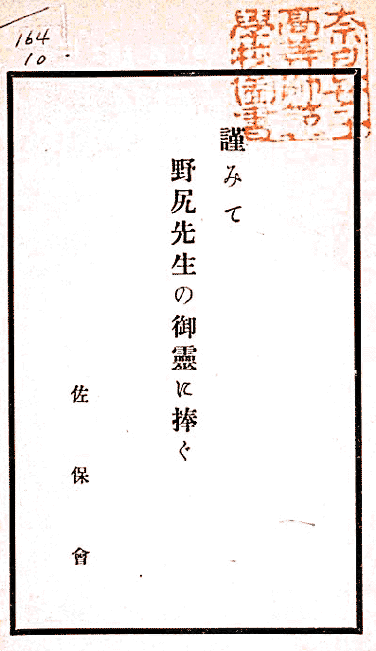 164
10
奈良女子
高等師範
學校圖書
謹みて
野尻先生の御靈に捧ぐ
佐保會